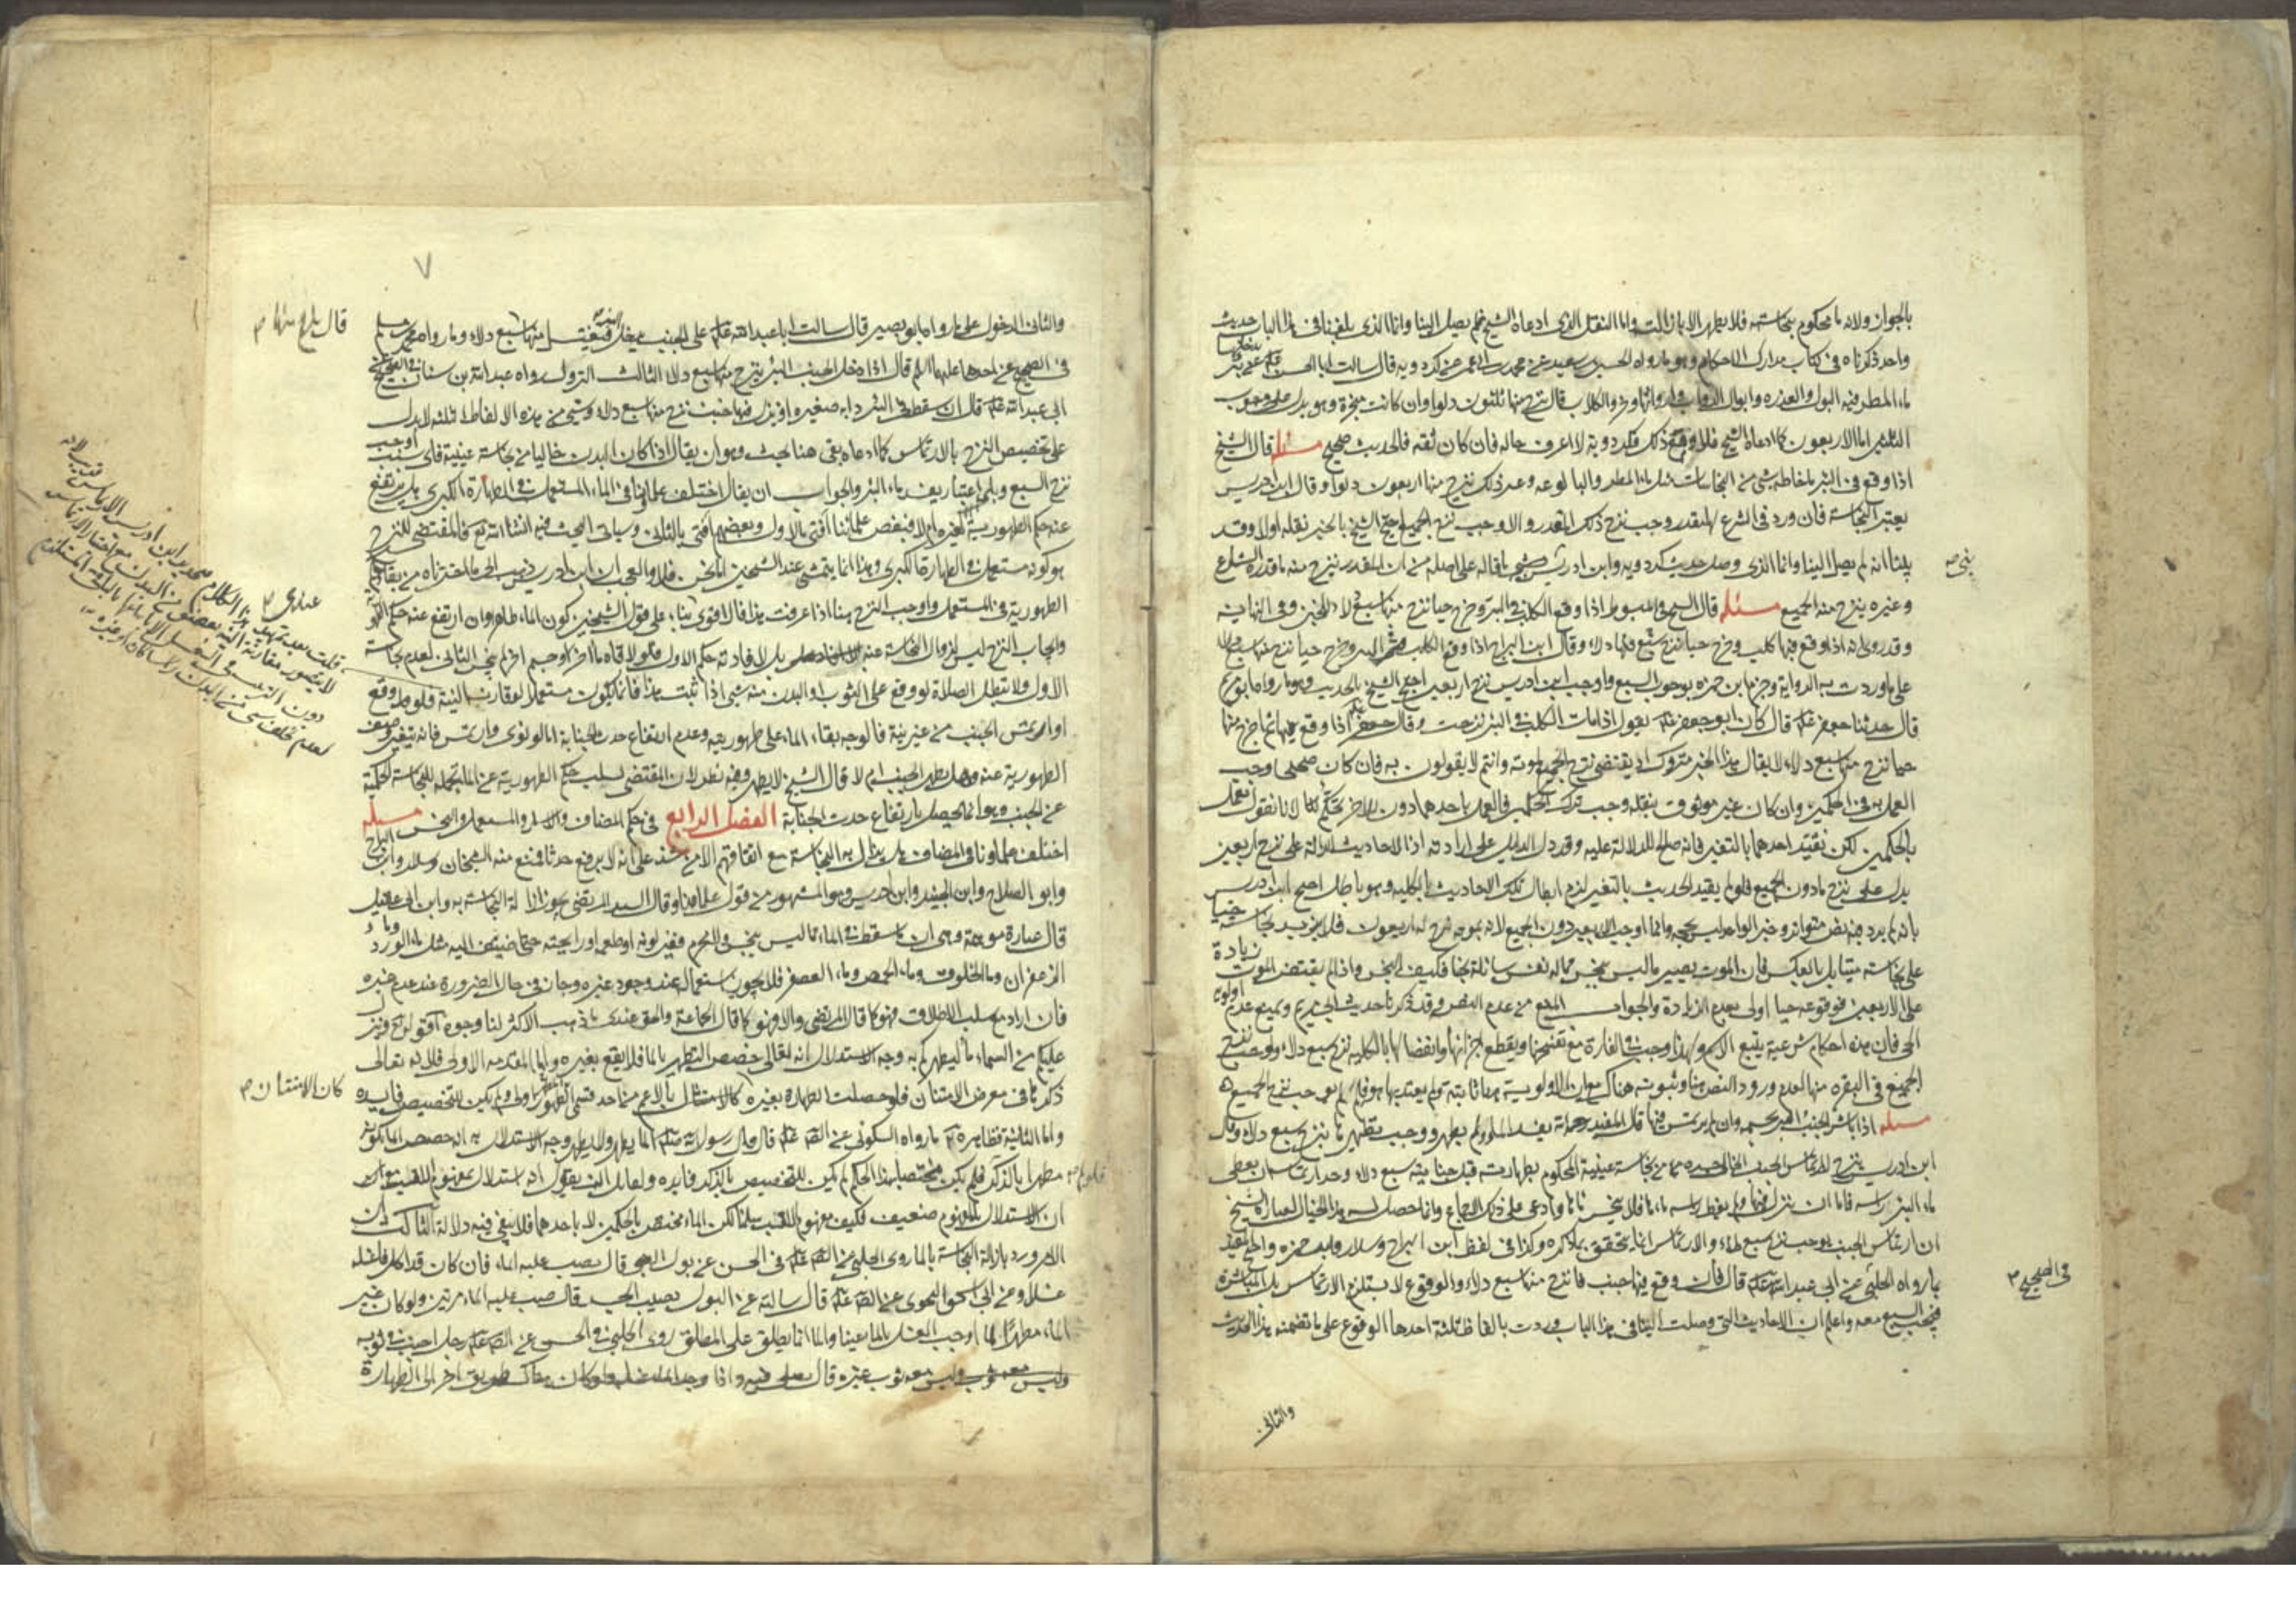 بالجواز ولانه ماء محكوم بنجاسته فلا يطهر الا بازالت واما النقل الذي ادعاه الشيخ فلم يصل الينا وانما الذي بلغنا في هذا الباب حديث
واحد ذكرناه في كتاب مدارك الاحكام وهو ما رواه الحسين بن سعيد عن محمد بن ابي عمير عن كردويه قال سالت ابا الحسن عن بئر يدخلها
ماء المطر فيه البول والعذرة وابوال الدواب وارواثها وخرء الكلاب قال ينزح منها ثلثون دلوا وان كانت مبخرة وهو يدل على وجوب
الثلثين اما الاربعون كما ادعاه الشيخ فلا ومع ذلك فكردويه لا اعرف حاله فان كان ثقة فالحديث صحيح مسئلة قال الشيخ
اذا وقع في البئر ماء خالطه شيء من النجاسات مثل ماء المطر والبالوعة وغير ذلك نزح منها اربعون دلوا وقال ابن ادريس
يعتبر النجاسة فان ورد في الشرع لها مقدر وجب نزح ذلك المقدر والا وجب نزح الجميع احتج الشيخ بالخبر نقله اولا وقد
بينا انه لم يصل الينا وانما الذي وصل حديث كردويه وابن ادريس احتج بما قاله على اصله من ان المقدر ينزح منه ما قدره الشارع
وغيره ينزح منه الجميع مسئلة قال الشيخ في المبسوط اذا وقع الكلب في البئر وخرج حيا نزح منها سبع دلاء للخبر وفي النهاية
وقد روي انه اذا وقع فيها كلب وخرج حيا نزح منها سبع دلاء وقال ابن البراج اذا وقع الكلب في البئر وخرج حيا نزح منها سبع دلاء
على ما وردت به الرواية وجزم ابن حمزة بوجوب السبع واوجب ابن ادريس نزح اربعين احتج الشيخ بالحديث وهو ما رواه ابو مريم
قال حدثنا جعفر قال كان ابو جعفر يقول اذا مات الكلب في البئر نزحت وقال جعفر اذا وقع فيها ثم اخرج منها
حيا نزح منها سبع دلاء لا يقال هذا الخبر متروك اذ يقتضي نزح الجميع لموته وانتم لا تقولون به فان كان صحيحا وجب
العمل به في الحكمين وان كان غير موثوق بنقله وجب ترك الحكمين فالعمل باحدهما دون الاخر تحكم لانا نقول نعمل
بالحكمين لكن نقيد احدهما بالتغير فانه صالح للدلالة عليه وقد دل الدليل على ارادته اذ الاحاديث الدالة على نزح اربعين
يدل على نزح ما دون الجميع فلو لم يقيد الحديث بالتغير لزم ابطال تلك الاحاديث بالكلية وهو باطل احتج ابن ادريس
بانه لم يرد فيه نص متواتر وخبر الواحد ليس بحجة وانما اوجب الاربعين دون الجميع لانه بموته ينزح له اربعون فلا يزيد نجاسته حيا
على نجاسته ميتا بل بالعكس فان الموت يصير ما ليس بنجس مما له نفس سائلة نجسا فكيف النجس واذا لم يقتض الموت زيادة
على الاربعين فوقوعه حيا اولى بعدم الزيادة والجواب المنع من عدم النص وقد ذكرنا حديث ابي مريم ونمنع عدم اولوية
الحي فان هذه احكام شرعية يتبع الاسم ولهذا وجب في الفارة مع تفسخها وتقطع اجزائها وانفصالها بالكلية نزح سبع دلاء ولو حب نزح
الجميع في البقرة منها لعدم ورود النص هنا وثبوته هناك مع ان الاولوية هنا ثابتة ولم يعتد بها هو فلم يوجب نزح الجميع
مسئلة اذا باشر الجنب البئر بجسمه وان لم يرتمس فيها قال المفيد رحمه الله يفسد الماء ولم يطهر ووجب تطهيرها بنزح سبع دلاء وقال
ابن ادريس ينزح لارتماس الجنب الخالي جسده من نجاسة عينية المحكوم بطهارته قبل جنابته سبع دلاء وحد ارتماسه ان يغطي
ماء البئر راسه فاما ان نزل فيها ولم يغط راسه ماءها فلا ينجس ماءها وادعى على ذلك الاجماع وانما حصل له هذا الخيال لعبارة الشيخ
ان ارتماس الجنب يوجب نزح سبع دلاء والارتماس انما يتحقق بما ذكره وكذا في لفظ ابن البراج وسلار وابن حمزة واحتج المفيد
بما رواه الحلبي عن ابي عبد الله قال فان وقع فيها جنب فانزح منها سبع دلاء والوقوع لا يستلزم الارتماس بل المباشرة
فيجب السبع معه واعلم ان الاحاديث التي وصلت الينا في هذا الباب وردت بالفاظ ثلثة احدها الوقوع على ما تضمنه هذا الحديث
والثاني
في الصحيح
والثاني الدخول على ما رواه ابو بصير قال سالت ابا عبد الله على الجنب يدخل البئر فيغتسل منها سبع دلاء وما رواه محمد بن مسلم
في الصحيح عن احدهما عليهما السلم قال اذا دخل الجنب البئر ينزح منها سبع دلاء الثالث النزول رواه عبد الله بن سنان في الصحيح
ابي عبد الله قال ان سقط في البئر دابة صغيرة او نزل فيها جنب نزح منها سبع دلاء وشيء من هذه الالفاظ الثلثة لا يدل
على تخصيص النزح بالارتماس كما ادعاه بقي هنا بحث وهو ان يقال اذا كان البدن خاليا من نجاسة عينية فاي سبب اوجب
نزح السبع وباي اعتبار يفسد ماء البئر والجواب ان يقال اختلف علماؤنا في الماء المستعمل في الطهارة الكبرى هل يرتفع
عنه حكم الطهورية لغيره ام لا فبعض علمائنا افتى بالاول وبعضهم افتى بالثاني وسياتي البحث فيه انشاء الله تع فالمقتضي للنزح
هو كونه مستعملا في الطهارة الكبرى وهذا انما يتمشى عند الشيخين اما نحن فلا والعجب ان ابن ادريس ذهب الى ما اخترناه من بقاء
الطهورية في المستعمل واوجب النزح هنا اذا عرفت هذا فالاقوى بناء على قول الشيخين كون الماء طاهرا وان ارتفع عنه حكم الطهورية
وايجاب النزح ليس لزوال النجاسة عنه بل لافادته حكم الاول فلو لاقاه ماء اخر او جسم اخر لم ينجس الثاني لعدم نجاسة
الاول ولا تبطل الصلاة لو وقع على الثوب او البدن منه شيء اذا ثبت هذا فانما يكون مستعملا لو قارن النية فلو وقع
او ارتمس الجنب من غير نية فالوجه بقاء الماء على طهوريته وعدم ارتفاع حدث الجنابة اما لو نوى وارتمس فانه يتغير وصف
الطهورية عنه وهل يطهر الجنب ام لا قال الشيخ لا يطهر وفيه نظر لان المقتضي لسلب حكم الطهورية عن الماء تحمله للنجاسة الحكمية
عن الجنب وهو انما يحصل بارتفاع حدث الجنابة الفصل الرابع في حكم المضاف والاسار والمستعمل والنجس مسئلة
اختلف علماؤنا في المضاف هل يزال به النجاسة مع اتفاقهم الا من شذ على انه لا يرفع حدثا فمنع منه الشيخان وسلار وابن البراج
وابو الصلاح وابن الجنيد وابن ادريس وهو المشهور من قول علمائنا وقال السيد المرتضى يجوز ازالة النجاسة به وابن ابي عقيل
قال عبارة موهمة وهي ان ما سقط في الماء مما ليس بنجس ولا محرم فغير لونه او طعمه او رايحته حتى اضيف اليه مثل ماء الورد وماء
الزعفران وماء الخلوق وماء الحمص وماء العصفر فلا يجوز استعماله عند وجود غيره وجاز في حال الضرورة عند عدم غيره
فان اراد مع سلب الاطلاق فهو كما قال المرتضى والا فهو كما قال الجماعة والحق عندي ما ذهب اليه الاكثر لنا وجوه قوله تع وينزل
عليكم من السماء ماء ليطهركم به وجه الاستدلال انه تعالى خصص التطهير بالماء فلا يقع بغيره واما المقدمة الاولى فلانه تعالى
ذكرها في معرض الامتنان فلو حصلت الطهارة بغيره كان الامتنان بالاعم من احد قسمي الطهور اولى ولم يكن للتخصيص فايدة
واما الثانية فظاهرة ما رواه السكوني عن الصادق قال قال رسول الله الماء يطهر ولا يطهر وجه الاستدلال به انه خصص الماء بكونه
مطهرا بالذكر فلو لم يكن مختصا بهذا الحكم لم يكن للتخصيص بالذكر فايدة ولقائل ان يقول انه استدلال بمفهوم اللقب مع
ان الاستدلال بالمفهوم ضعيف فكيف مفهوم اللقب سلمنا لكن الماء مختص بالحكمين لا باحدهما فلا يبقى فيه دلالة الثالث ان
الامر ورد بازالة النجاسة بالماء روى الحلبي عن الصادق في الحسن عن بول الصبي قال يصب عليه الماء فان كان قد اكل فاغسله
غسلا وعن ابي اسحق النحوي عن الصادق قال سالته عن البول يصيب الجسد قال صب عليه الماء مرتين ولو كان غير
الماء مطهرا لما اوجب الغسل بالماء عينا والماء انما يطلق على المطلق روى الحلبي في الحسن عن الصادق رجل اجنب في ثوبه
وليس معه ثوب غيره قال يصلي فيه واذا وجد الماء غسله ولو كان هناك طريق اخر الى الطهارة
كان الامتنان